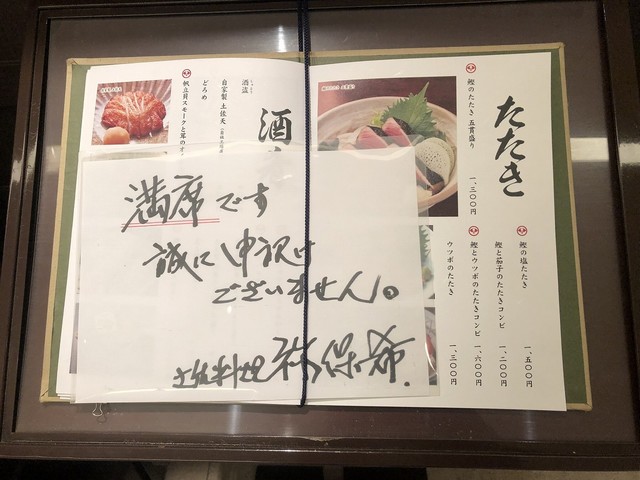 たたき
鰹のたたき 五貫盛り 一、三〇〇円
鰹の塩たたき 一、五〇〇円
鰹と茄子のたたきコンビ 一、二〇〇円
鰹とウツボのたたきコンビ 一、六〇〇円
ウツボのたたき 一、三〇〇円
酒
酒盗
自家製 土佐天
どろめ
帆立貝スモークと茸のオ
満席です
誠に申訳け
ございません。
土佐料理 祢保希